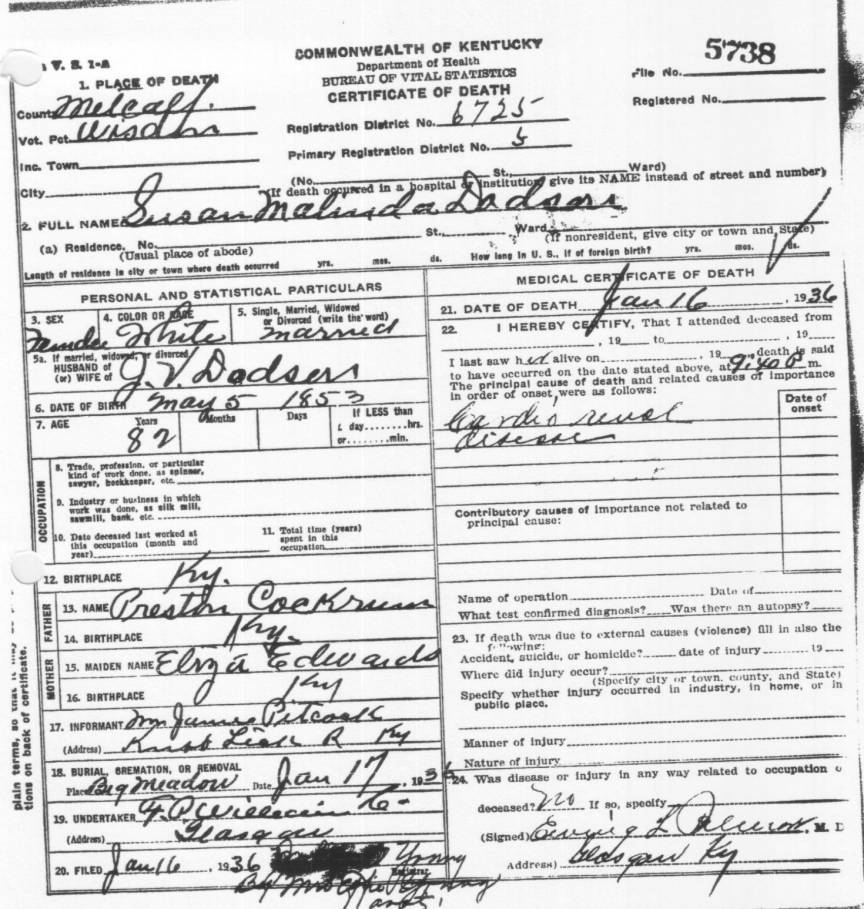 V. S. 1-A
COMMONWEALTH OF KENTUCKY
Department of Health
BUREAU OF VITAL STATISTICS
CERTIFICATE OF DEATH
File No. 5738
Registered No.
1. PLACE OF DEATH
County Metcalf.
Vot. Pct. Wisdom
Inc. Town
City
Registration District No. 6725
Primary Registration District No. 5
(No. St., Ward)
(If death occurred in a hospital or institution give its NAME instead of street and number)
2. FULL NAME Susan Malinda Dodson
(a) Residence. No. St., Ward
(Usual place of abode) (If nonresident, give city or town and State)
Length of residence in city or town where death occurred yrs. mos. ds. How long in U. S., if of foreign birth? yrs. mos. ds.
PERSONAL AND STATISTICAL PARTICULARS
3. SEX 4. COLOR OR RACE 5. Single, Married, Widowed
or Divorced (write the word)
White married
5a. If married, widowed, or divorced
HUSBAND of
(or) WIFE of J. V. Dodson
6. DATE OF BIRTH may 5 1853
7. AGE Years Months Days If LESS than
1 day........hrs.
or........min.
82
OCCUPATION
8. Trade, profession, or particular
kind of work done, as spinner,
sawyer, bookkeeper, etc.
9. Industry or business in which
work was done, as silk mill,
sawmill, bank, etc.
10. Date deceased last worked at
this occupation (month and
year)
11. Total time (years)
spent in this
occupation
12. BIRTHPLACE Ky.
FATHER
13. NAME Preston Cockrum
14. BIRTHPLACE Ky.
MOTHER
15. MAIDEN NAME Eliza Edwards
16. BIRTHPLACE Ky
17. INFORMANT James Pitcock
(Address) Knob Lick R Ky
18. BURIAL, CREMATION, OR REMOVAL
Place Big Meadow Date Jan 17, 1936
19. UNDERTAKER
(Address) Glasgow
20. FILED Jan 16, 1936 Young
Registrar.
By Young
MEDICAL CERTIFICATE OF DEATH
21. DATE OF DEATH Jan 16, 1936
22. I HEREBY CERTIFY, That I attended deceased from
, 19 to , 19
I last saw her alive on , 19 , death is said
to have occurred on the date stated above, at 9:40 P m.
The principal cause of death and related causes of importance
in order of onset were as follows:
Date of
onset
Cardio renal
disease
Contributory causes of importance not related to
principal cause:
Name of operation Date of
What test confirmed diagnosis? Was there an autopsy?
23. If death was due to external causes (violence) fill in also the
following:
Accident, suicide, or homicide? date of injury 19
Where did injury occur?
(Specify city or town, county, and State)
Specify whether injury occurred in industry, in home, or in
public place.
Manner of injury
Nature of injury
24. Was disease or injury in any way related to occupation o
deceased? No If so, specify
(Signed) M. D
Address) Glasgow Ky
plain terms, so that it may be
tions on back of certificate.